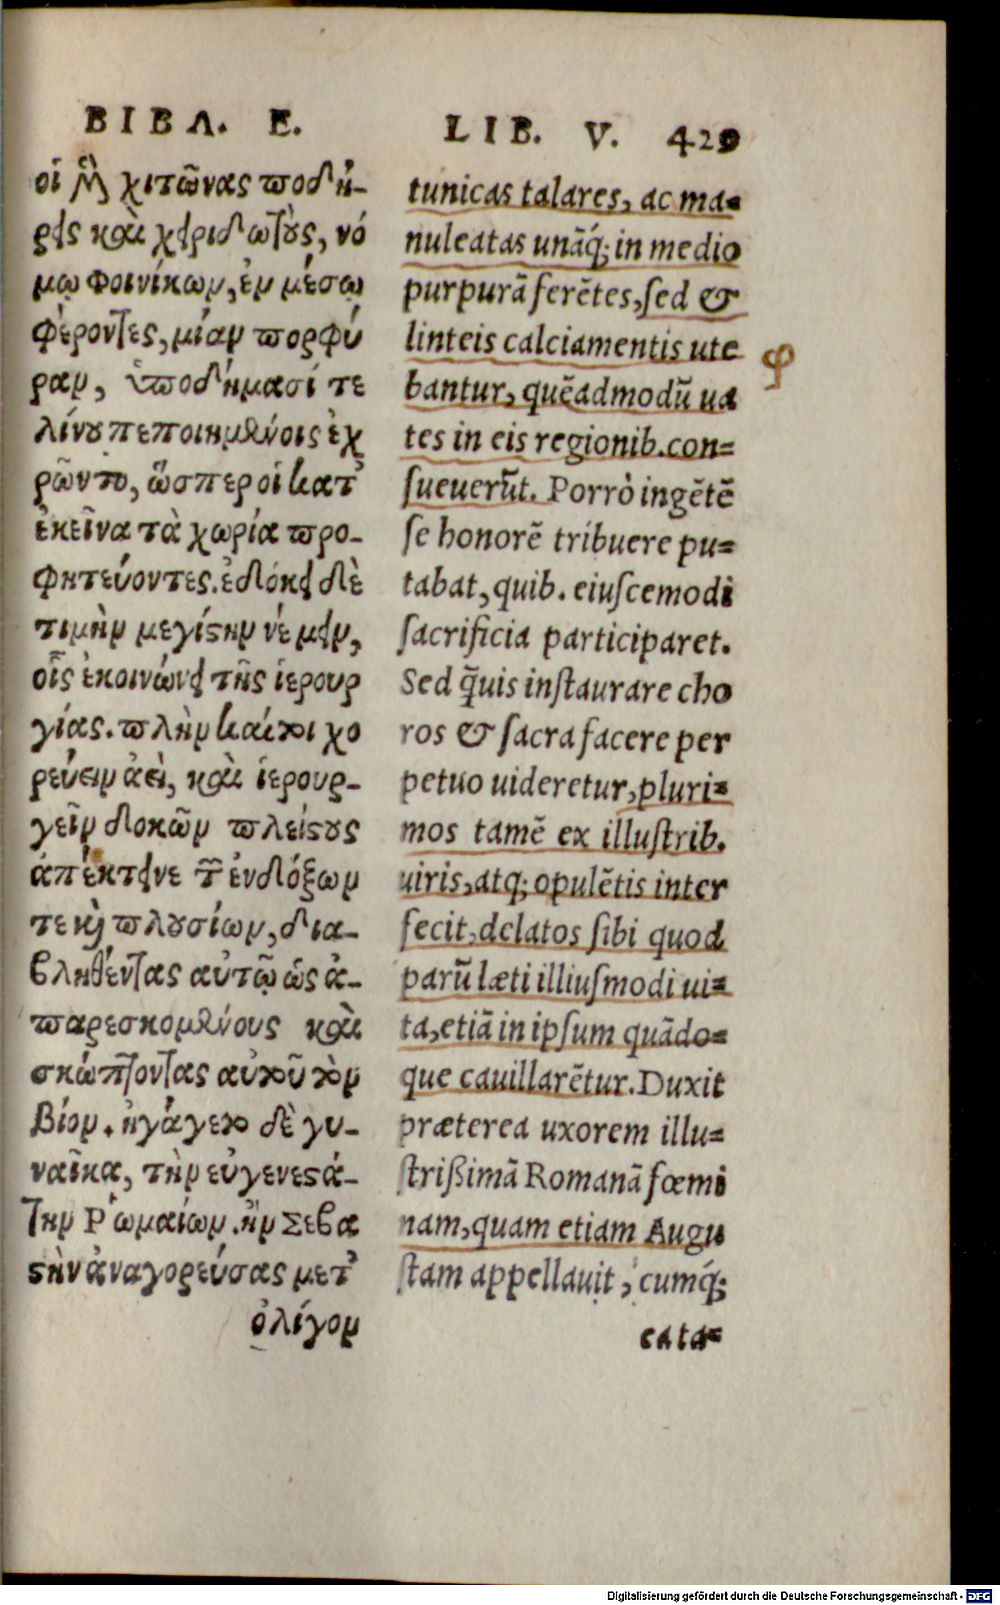 ΒΙΒΛ. Ε.
οἱ μὲν χιτῶνας ποδή-
ρεις καὶ χειριδωτοὺς, νό
μῳ Φοινίκων, ἐν μέσῳ
φέροντες, μίαν πορφύ
ραν, ὑποδήμασί τε
λίνου πεποιημένοις ἐχ
ρῶντο, ὥσπερ οἱ κατ᾽
ἐκεῖνα τὰ χωρία προ-
φητεύοντες. ἐδόκει δὲ
τιμὴν μεγίστην νέμειν,
οἷς ἐκοινώνει τῆς ἱερουρ
γίας. πλὴν καίτοι χο
ρεύειν ἀεὶ, καὶ ἱερουρ-
γεῖν δοκῶν πλείστους
ἀπέκτεινε τῶν ἐνδόξων
τε καὶ πλουσίων, δια-
βληθέντας αὐτῷ ὡς ἀ-
παρεσκομένους καὶ
σκώπτοντας αὐτοῦ τὸν
βίον. ἠγάγετο δὲ γυ-
ναῖκα, τὴν εὐγενεστά-
την Ῥωμαίων. ἣν Σεβα
στὴν ἀναγορεύσας μετ᾽
ὀλίγον
LIB. V. 429
tunicas talares, ac ma=
nuleatas unāq́; in medio
purpurā ferētes, sed &
linteis calciamentis ute
bantur, quēadmodū ua
tes in eis regionib. con=
sueuerūt. Porrò ingētē
se honorē tribuere pu=
tabat, quib. eiuscemodi
sacrificia participaret.
Sed q̄uis instaurare cho
ros & sacra facere per
petuo uideretur, pluri=
mos tamē ex illustrib.
uiris, atq; opulētis inter
fecit, delatos sibi quod
parū læti illiusmodi ui=
ta, etiā in ipsum quādo=
que cauillarētur. Duxit
præterea uxorem illu=
strißimā Romanā fœmi
nam, quam etiam Augu
stam appellauit, cumq́;
cata=
φ
Digitalisierung gefördert durch die Deutsche Forschungsgemeinschaft - DFG